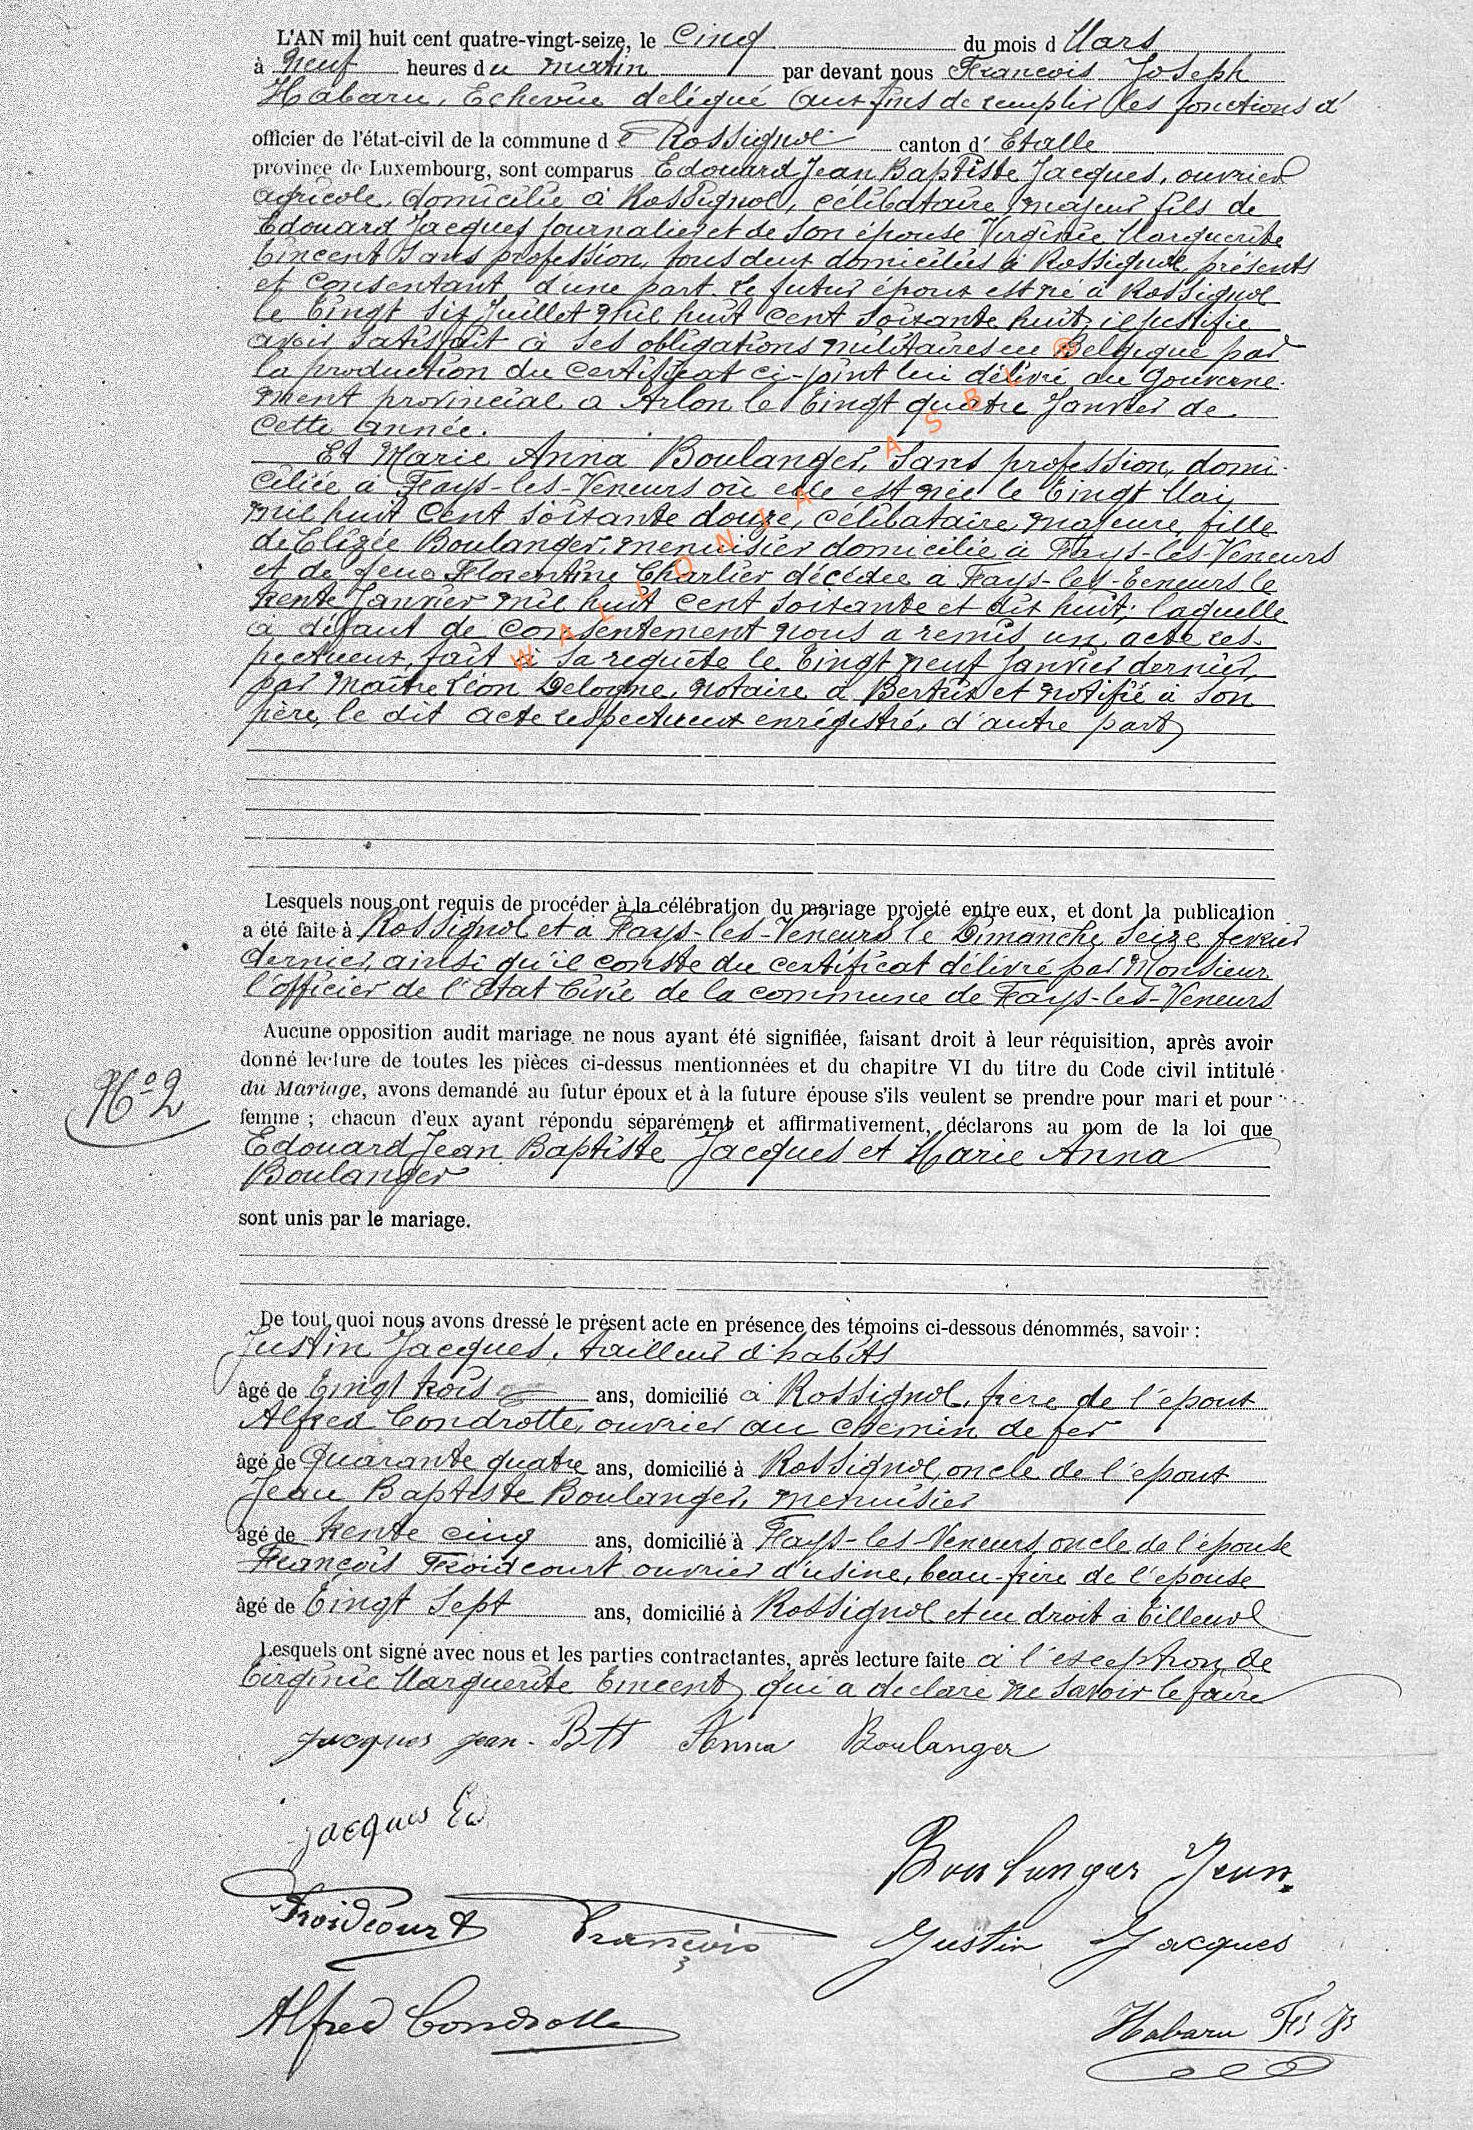 L'AN mil huit cent quatre-vingt-seize, le Cinq du mois d Mars
à neuf heures du matin par devant nous François Joseph
Habaru, Echevin délégué aux fins de remplir les fonctions d'
officier de l'état-civil de la commune de Rossignol canton d' Etalle
province de Luxembourg, sont comparus Edouard Jean Baptiste Jacques, ouvrier
agricole, domicilié à Rossignol, célibataire, majeur fils de
Edouard Jacques journalier et de son épouse Virginie Marguerite
Vincent sans profession, tous deux domiciliés à Rossignol, présents
et consentant d'une part. Le futur époux est né à Rossignol
le vingt six Juillet mil huit cent soixante huit; il justifie
avoir satisfait à ses obligations militaires en Belgique par
la production du certificat ci-joint lui délivré au Gouverne-
ment provincial a Arlon le vingt quatre Janvier de
cette année.
Et Marie Anna Boulanger, sans profession, domi-
ciliée a Fays-les-Veneurs où elle est née le vingt Mai
mil huit cent soixante douze, célibataire, majeure, fille
de Elizée Boulanger, menuisier domicilié a Fays-les-Veneurs
et de feue Florentine Charlier décédée à Fays-les-Veneurs le
trente Janvier mil huit cent soixante et dix huit; laquelle
à défaut de consentement nous a remis un acte res-
pectueux, fait à sa requête le vingt neuf janvier dernier,
par Maître Léon Delogne, notaire à Bertrix et notifié à son
père, le dit acte respectueux enrégistré, d'autre part
WALLONIA ASBL ®
Lesquels nous ont requis de procéder à la célébration du mariage projeté entre eux, et dont la publication
a été faite à Rossignol et a Fays-les-Veneurs le Dimanche seize fevrier
dernier, ainsi qu'il conste du certificat délivré par Monsieur
l'officier de l'Etat Civil de la commune de Fays-les-Veneurs
Aucune opposition audit mariage ne nous ayant été signifiée, faisant droit à leur réquisition, après avoir
donné lecture de toutes les pièces ci-dessus mentionnées et du chapitre VI du titre du Code civil intitulé
du Mariage, avons demandé au futur époux et à la future épouse s'ils veulent se prendre pour mari et pour
femme ; chacun d'eux ayant répondu séparément et affirmativement, déclarons au nom de la loi que
N° 2
Edouard Jean Baptiste Jacques et Marie Anna
Boulanger
sont unis par le mariage.
De tout quoi nous avons dressé le présent acte en présence des témoins ci-dessous dénommés, savoir :
Justin Jacques, tailleur d'habits
âgé de vingt trois ans, domicilié à Rossignol, frère de l'époux
Alfred Condrotte, ouvrier au chemin de fer
âgé de Quarante quatre ans, domicilié à Rossignol, oncle de l'époux
Jean Baptiste Boulanger, menuisier
âgé de trente cinq ans, domicilié à Fays-les-Veneurs, oncle de l'épouse
François Froidcourt ouvrier d'usine, beau-frère de l'épouse
âgé de vingt sept ans, domicilié à Rossignol et en droit à Tilleul
Lesquels ont signé avec nous et les parties contractantes, après lecture faite à l'exception de
Virginie Marguerite Vincent, qui a declaré ne savoir le faire
Jacques jean-Btt Anna Boulanger
Jacques Ed
Boulanger Jean.
Froidcourt François Justin Jacques
Alfred Condrotte Habaru Fs Js